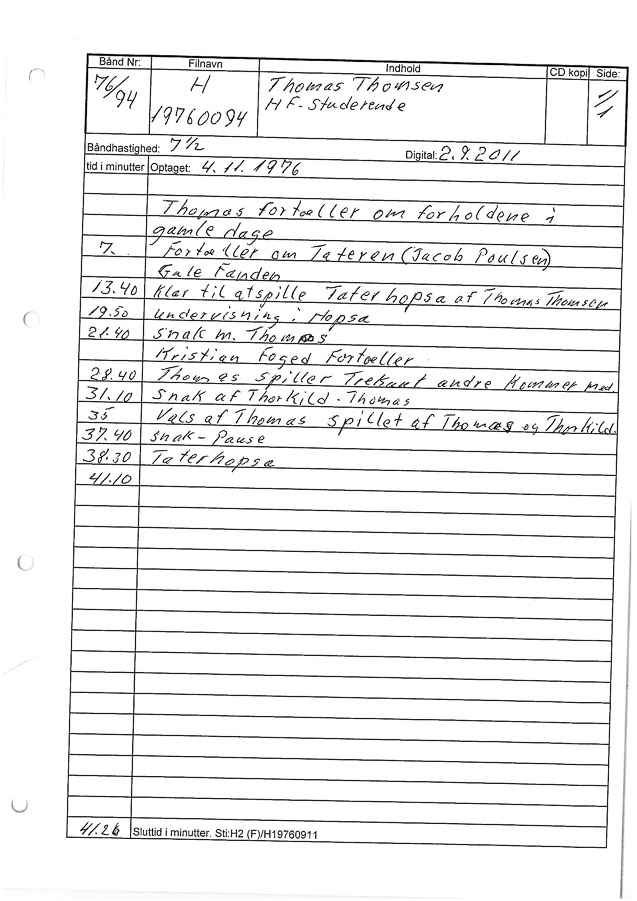 Bånd Nr: Filnavn Indhold CD kopi Side:
76/94 H Thomas Thomsen 1/1
19760094 HF-Studerende
Båndhastighed: 7½ Digital: 2.9.2011
tid i minutter Optaget: 4.11.1976
Thomas fortæller om forholdene i
gamle dage
7. Fortæller om Tateren (Jacob Poulsen)
Gale Fanden
13.40 Klar til at spille Taterhopsa af Thomas Thomsen
19.50 undervisning i Hopsa
21.40 Snak m. Thomas
Kristian Foged Fortæller
28.40 Thomas spiller Trekant andre kommer med.
31.10 Snak af Thorkild - Thomas
35 Vals af Thomas spillet af Thomas og Thorkild.
37.40 snak - Pause
38.30 Taterhopsa
41.10
41.26 Sluttid i minutter. Sti:H2 (F)/H19760911